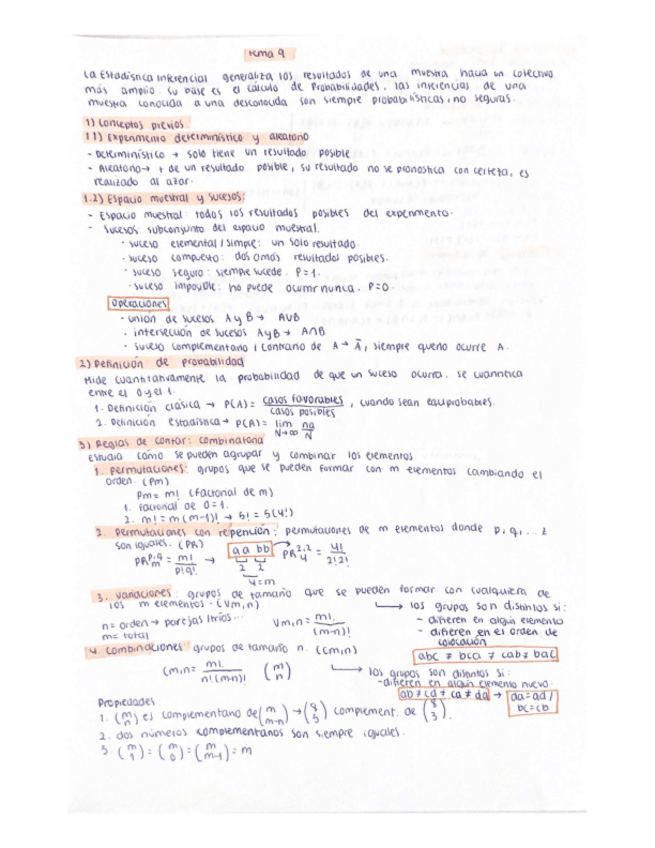 Tema 9
La Estadística Inferencial generaliza los resultados de una muestra hacia un colectivo
más amplio. Su base es el cálculo de Probabilidades. Las inferencias de una
muestra conocida a una desconocida son siempre probabilísticas, no seguras.
1) Conceptos previos
1.1) Experimento determinístico y aleatorio
- Determinístico → solo tiene un resultado posible
- Aleatorio → + de un resultado posible, su resultado no se pronostica con certeza, es
realizado al azar.
1.2) Espacio muestral y sucesos:
- Espacio muestral: todos los resultados posibles del experimento.
- Sucesos: subconjunto del espacio muestral.
· suceso elemental / simple: un solo resultado.
· suceso compuesto: dos o más resultados posibles.
· suceso seguro: siempre sucede. P=1.
· suceso imposible: no puede ocurrir nunca. P=0.
Operaciones
· unión de sucesos A y B → A∪B
· intersección de sucesos A y B → A∩B
· suceso complementario / contrario de A → Ā, siempre que no ocurre A.
2) Definición de probabilidad
Mide cuantitativamente la probabilidad de que un suceso ocurra. Se cuantifica
entre el 0 y el 1.
1. Definición clásica → P(A) = casos favorables / casos posibles, cuando sean equiprobables.
2. Definición estadística → P(A) = lim N→∞ na/N
3) Reglas de contar: combinatoria
Estudia cómo se pueden agrupar y combinar los elementos
1. Permutaciones: grupos que se pueden formar con m elementos cambiando el
orden. (Pm)
Pm = m! (factorial de m)
1. Factorial de 0 = 1.
2. m! = m(m-1)! → 5! = 5(4!)
2. Permutaciones con repención: permutaciones de m elementos donde p, q, ... z
son iguales. (PR)
PR m p,q = m!/p!q! → aa bb → PR 4 2,2 = 4!/2!2!
2 2
4=m
3. Variaciones: grupos de tamaño que se pueden formar con cualquiera de
los m elementos. (Vm,n) → los grupos son distintos si:
n = orden → parejas, tríos... Vm,n = m!/(m-n)! - difieren en algún elemento
m = total - difieren en el orden de
colocación
4. Combinaciones: grupos de tamaño n. (Cm,n) abc ≠ bca ≠ cab ≠ bac
Cm,n = m!/n!(m-n)! (m n) → los grupos son distintos si:
- difieren en algún elemento nuevo.
ab ≠ cd ≠ ca ≠ da → da=ad /
bc=cb
Propiedades
1. (m n) es complementario de (m m-n) → (8 5) complement. de (8 3).
2. dos números complementarios son siempre iguales.
3. (m 1) = (m 0) = (m m-1) = m